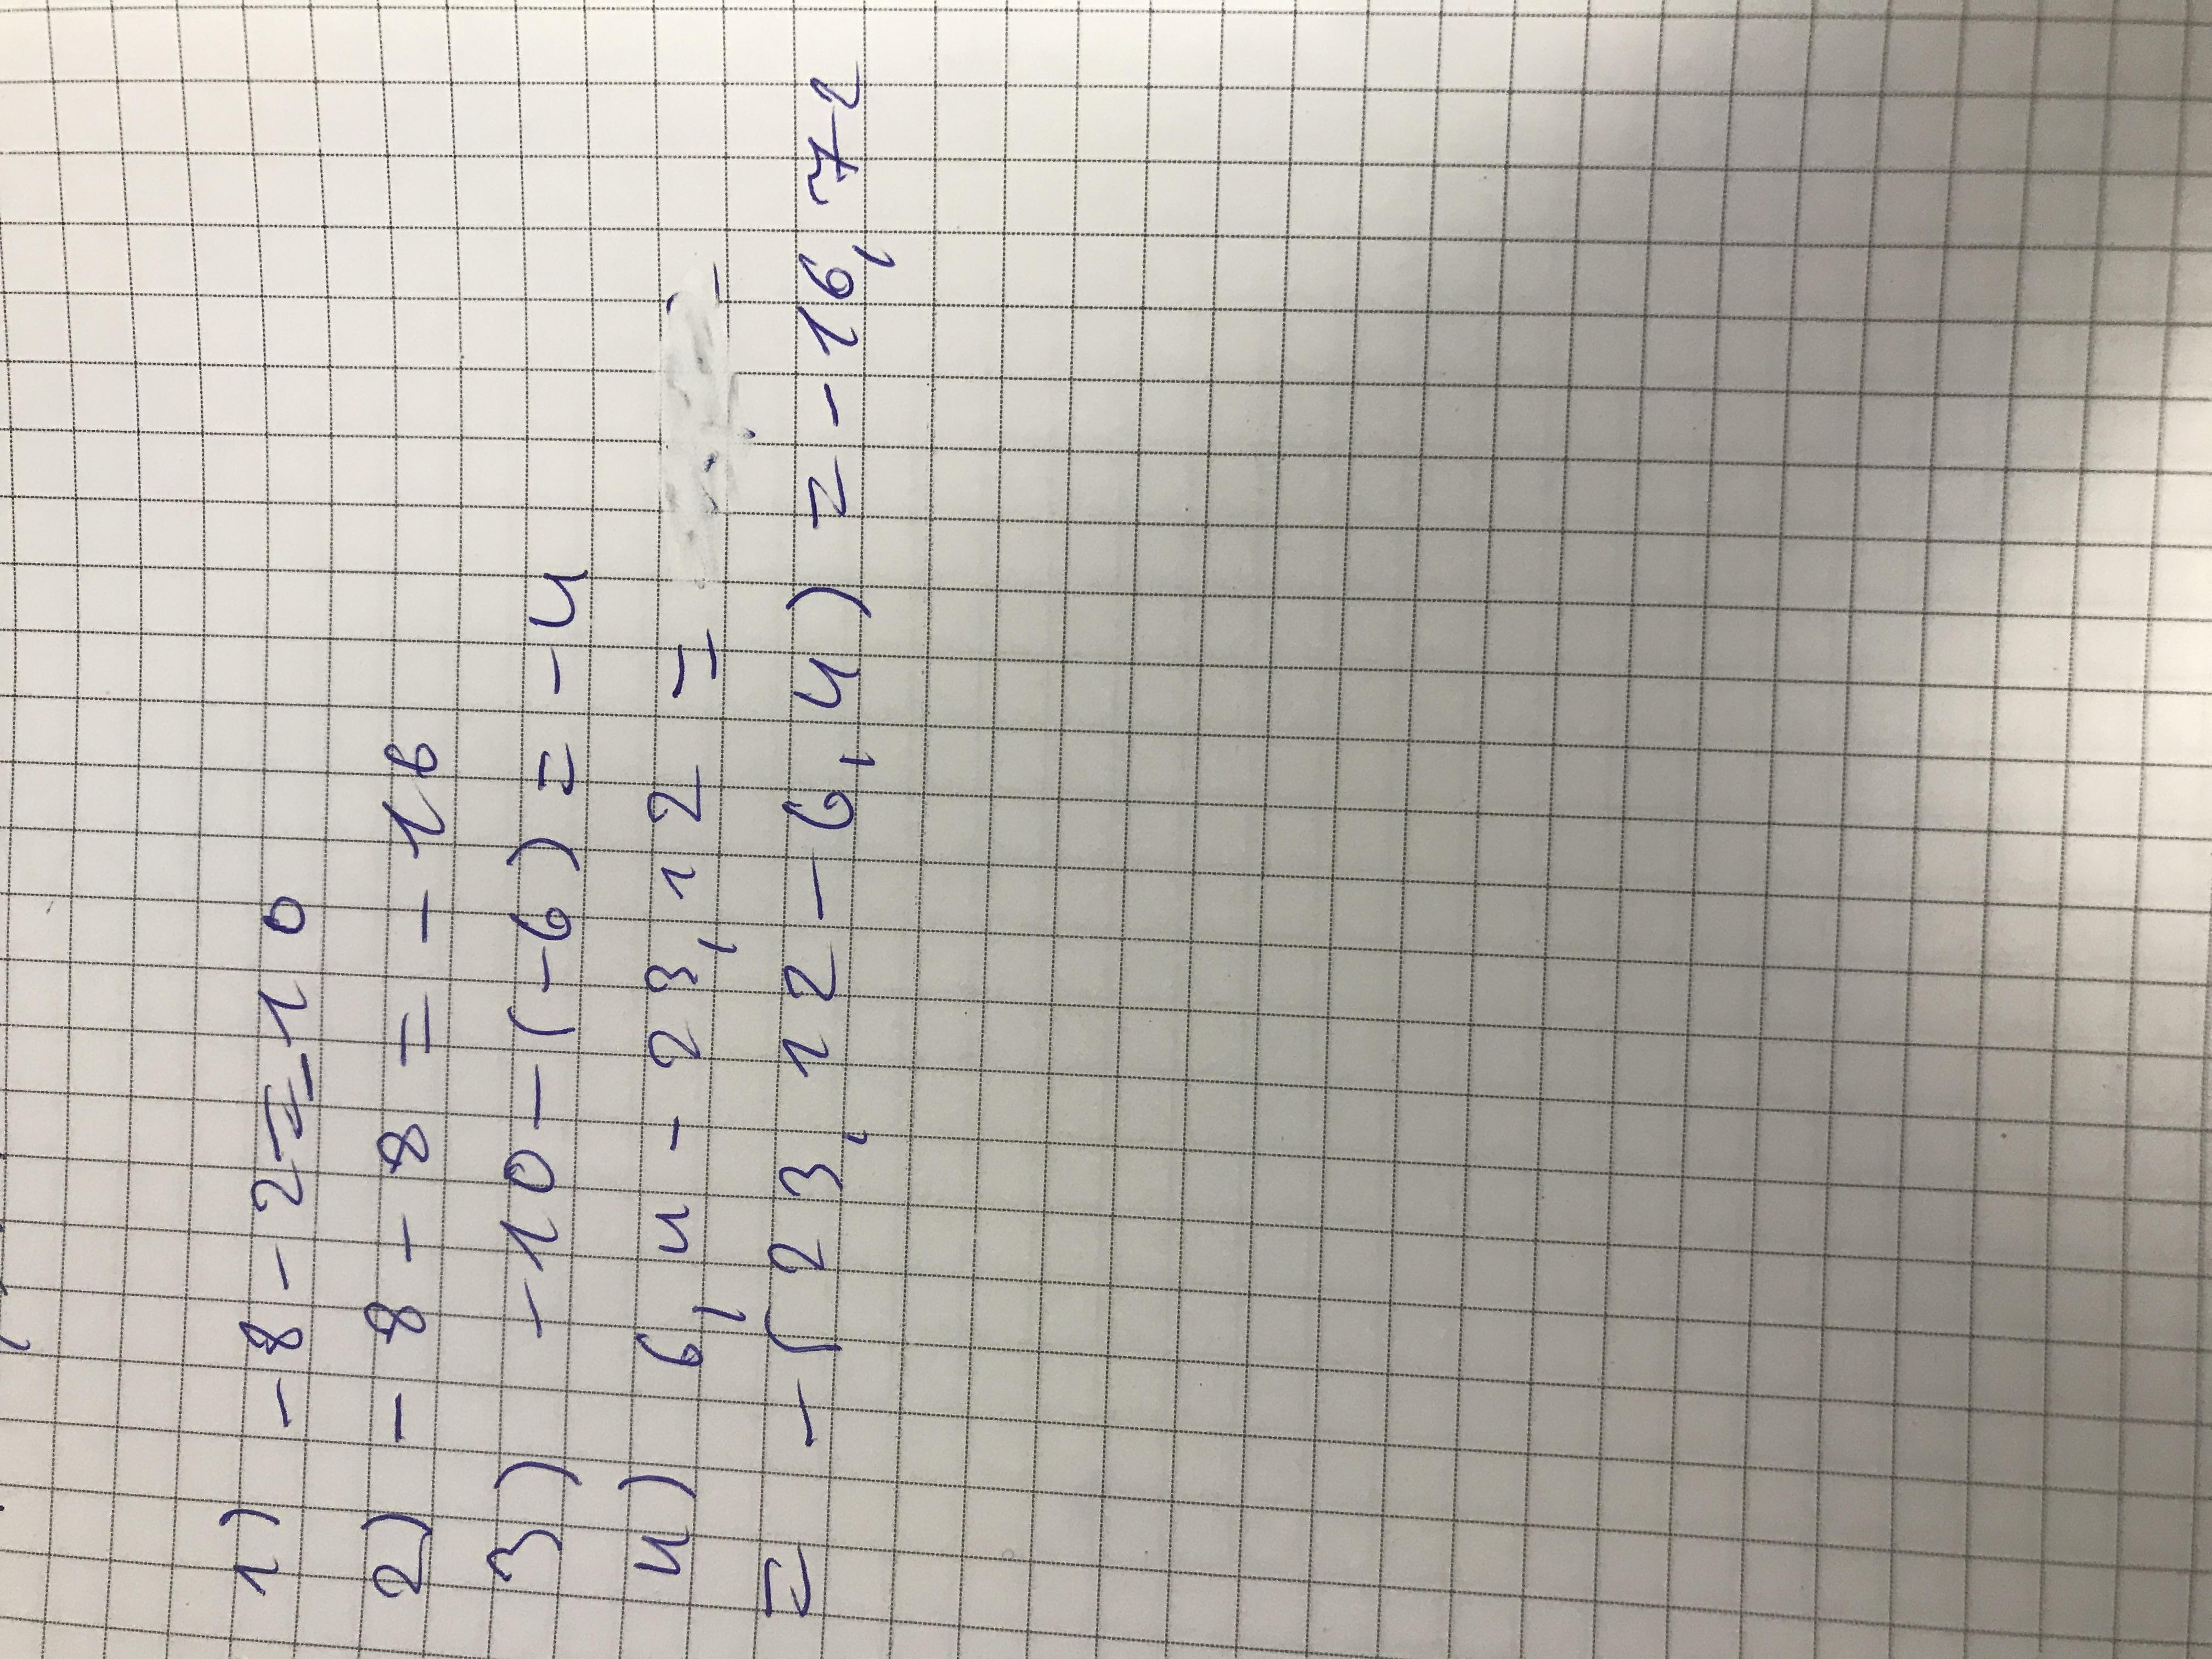 1) -8 - 2 = -10
2) - 8 - 8 = - 16
3) -10 - (-6) = - 4
4) 6,4 - 23,12 =
= - (23,12 - 6,4) = - 16,72